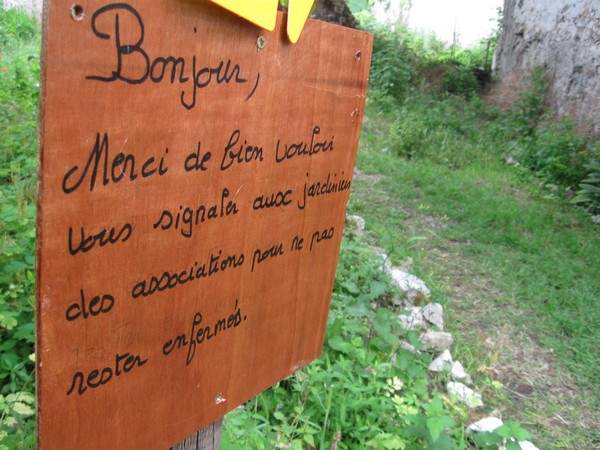 Bonjour,
Merci de bien vouloir
vous signaler aux jardiniers
des associations pour ne pas
rester enfermés.